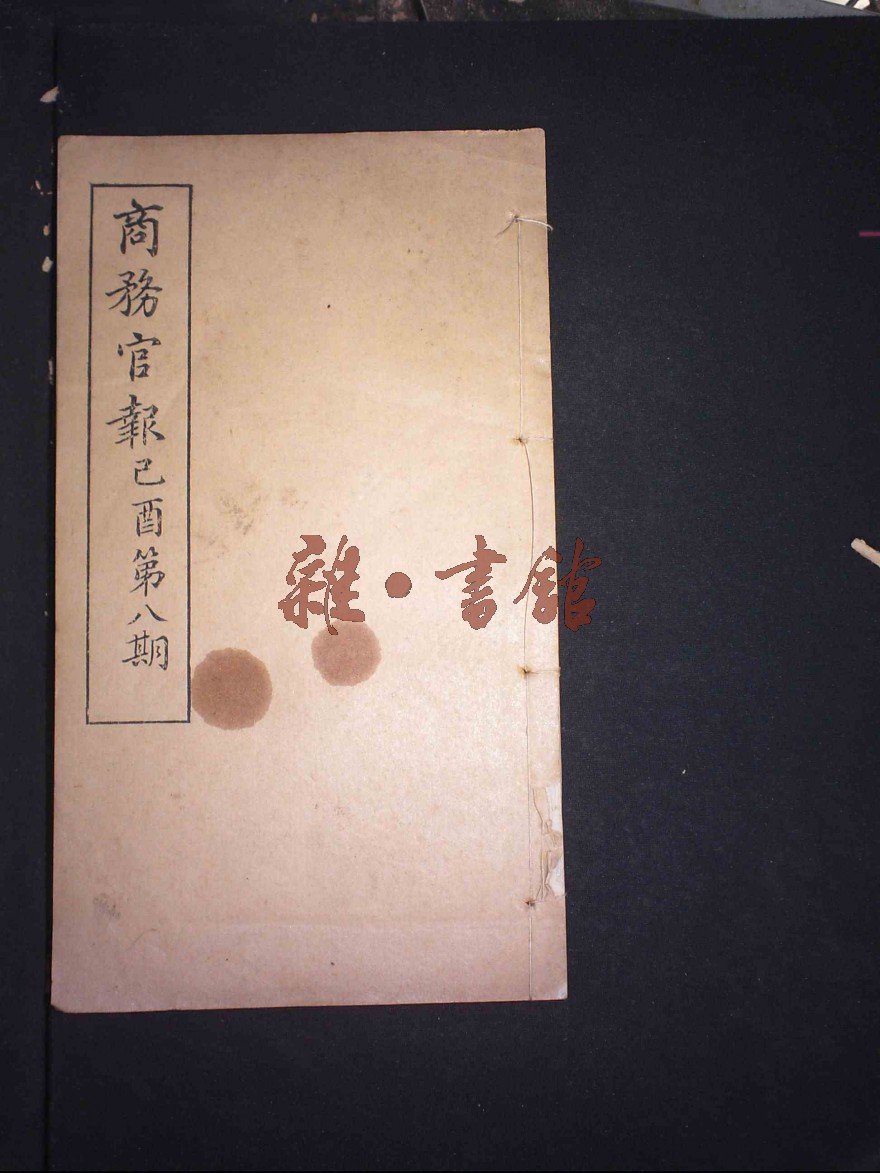 商務官報己酉第八期
雜·書館